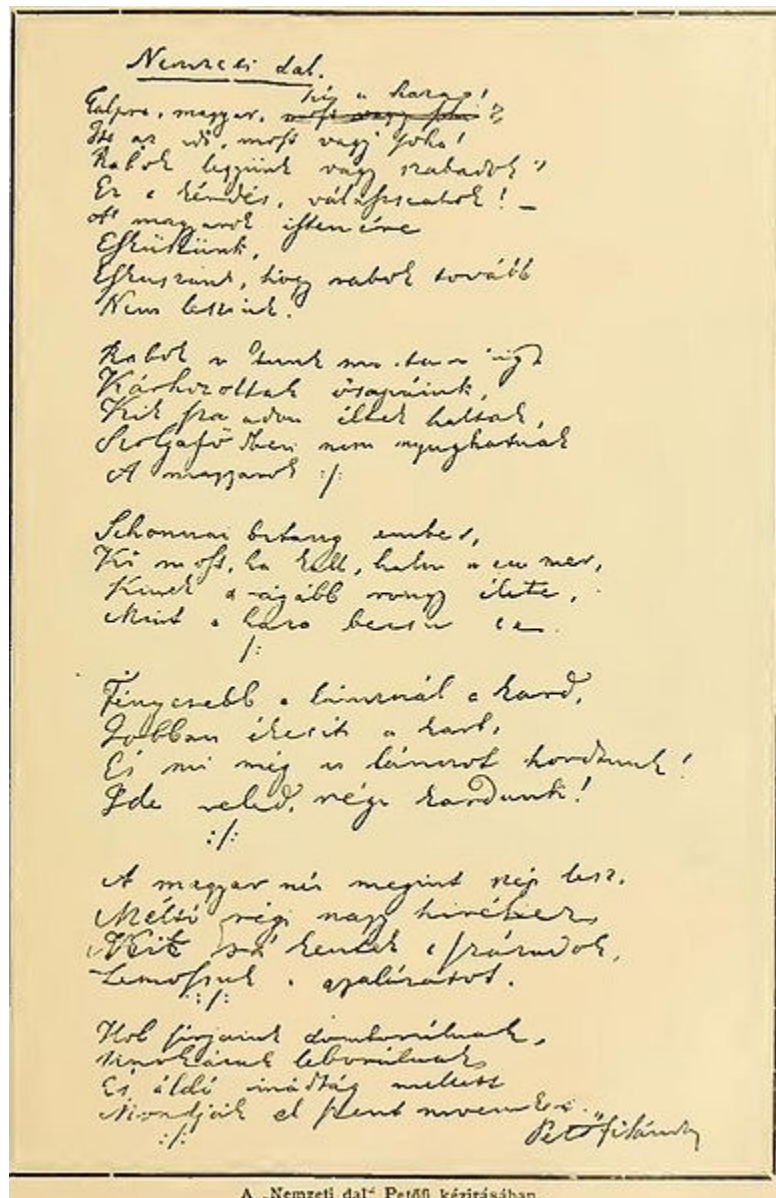 Nemzeti dal.
hí a haza!
Talpra, magyar, most vagy soha
Itt az idő, most vagy soha!
Rabok legyünk vagy szabadok?
Ez a kérdés, válasszatok! –
A magyarok istenére
Esküszünk,
Esküszünk, hogy rabok tovább
Nem leszünk.
Rabok voltunk mostanáig,
Kárhozottak ősapáink,
Kik szabadon éltek haltak,
Szolgaföldben nem nyughatnak
A magyarok :/:
Sehonnai bitang ember,
Ki most, ha kell, halni nem mer,
Kinek drágább rongy élete,
Mint a haza becsülete.
/:
Fényesebb a láncnál a kard,
Jobban ékesíti a kart,
És mi még is láncot hordtunk!
Ide veled, régi kardunk!
:/:
A magyar név megint szép lesz,
Méltó régi nagy hiréhez,
Mit rá kentek a századok,
Lemossuk a gyalázatot.
:/:
Hol sírjaink domborulnak,
Unokáink leborulnak,
És áldó imádság mellett
Mondják el szent neveinket.
:/:
Petőfi Sándor
A „Nemzeti dal“ Petőfi kézirásában.